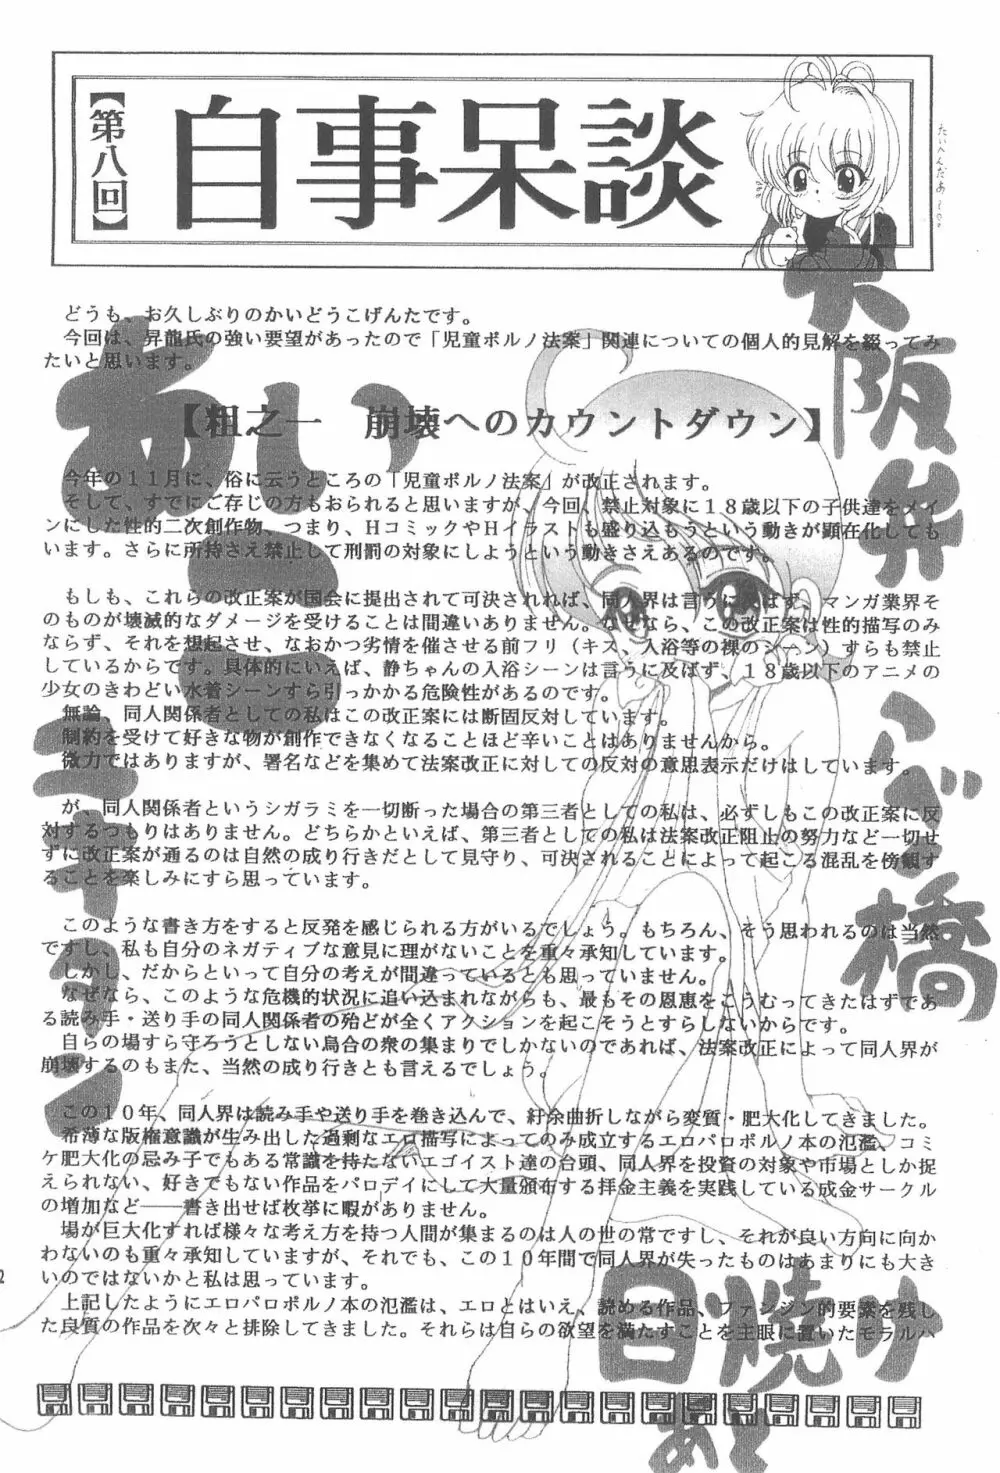 【第八回】
自事呆談
たいへんだあ～
どうも、お久しぶりのかいどうこげんたです。
今回は、昇龍氏の強い要望があったので「児童ポルノ法案」関連についての個人的見解を綴ってみ
たいと思います。
【粗之一　崩壊へのカウントダウン】
今年の１１月に、俗に云うところの「児童ポルノ法案」が改正されます。
そして、すでにご存じの方もおられると思いますが、今回、禁止対象に１８歳以下の子供達をメイ
ンにした性的二次創作物、つまり、ＨコミックやＨイラストも盛り込もうという動きが顕在化しても
います。さらに所持さえ禁止して刑罰の対象にしようという動きさえあるのです。
もしも、これらの改正案が国会に提出されて可決されれば、同人界は言うに及ばず、マンガ業界そ
のものが壊滅的なダメージを受けることは間違いありません。なぜなら、この改正案は性的描写のみ
ならず、それを想起させ、なおかつ劣情を催させる前フリ（キス、入浴等の裸のシーン）すらも禁止
しているからです。具体的にいえば、静ちゃんの入浴シーンは言うに及ばず、１８歳以下のアニメの
少女のきわどい水着シーンすら引っかかる危険性があるのです。
無論、同人関係者としての私はこの改正案には断固反対しています。
制約を受けて好きな物が創作できなくなることほど辛いことはありませんから。
微力ではありますが、署名などを集めて法案改正に対しての反対の意思表示だけはしています。
が、同人関係者というシガラミを一切断った場合の第三者としての私は、必ずしもこの改正案に反
対するつもりはありません。どちらかといえば、第三者としての私は法案改正阻止の努力など一切せ
ずに改正案が通るのは自然の成り行きだとして見守り、可決されることによって起こる混乱を傍観す
ることを楽しみにすら思っています。
このような書き方をすると反発を感じられる方がいるでしょう。もちろん、そう思われるのは当然
ですし、私も自分のネガティブな意見に理がないことを重々承知しています。
しかし、だからといって自分の考えが間違っているとも思っていません。
なぜなら、このような危機的状況に追い込まれながらも、最もその恩恵をこうむってきたはずであ
る読み手・送り手の同人関係者の殆どが全くアクションを起こそうとすらしないからです。
自らの場すら守ろうとしない烏合の衆の集まりでしかないのであれば、法案改正によって同人界が
崩壊するのもまた、当然の成り行きとも言えるでしょう。
この１０年、同人界は読み手や送り手を巻き込んで、紆余曲折しながら変質・肥大化してきました。
希薄な版権意識が生み出した過剰なエロ描写によってのみ成立するエロパロポルノ本の氾濫、コミ
ケ肥大化の忌み子でもある常識を持たないエゴイスト達の台頭、同人界を投資の対象や市場としか捉
えられない、好きでもない作品をパロデイにして大量頒布する拝金主義を実践している成金サークル
の増加など――書き出せば枚挙に暇がありません。
場が巨大化すれば様々な考え方を持つ人間が集まるのは人の世の常ですし、それが良い方向に向か
わないのも重々承知していますが、それでも、この１０年間で同人界が失ったものはあまりにも大き
いのではないかと私は思っています。
上記したようにエロパロポルノ本の氾濫は、エロとはいえ、読める作品、ファンジン的要素を残し
た良質の作品を次々と排除してきました。それらは自らの欲望を満たすことを主眼に置いたモラルハ
大阪弁
ハゲ橋
日焼け
あと
2